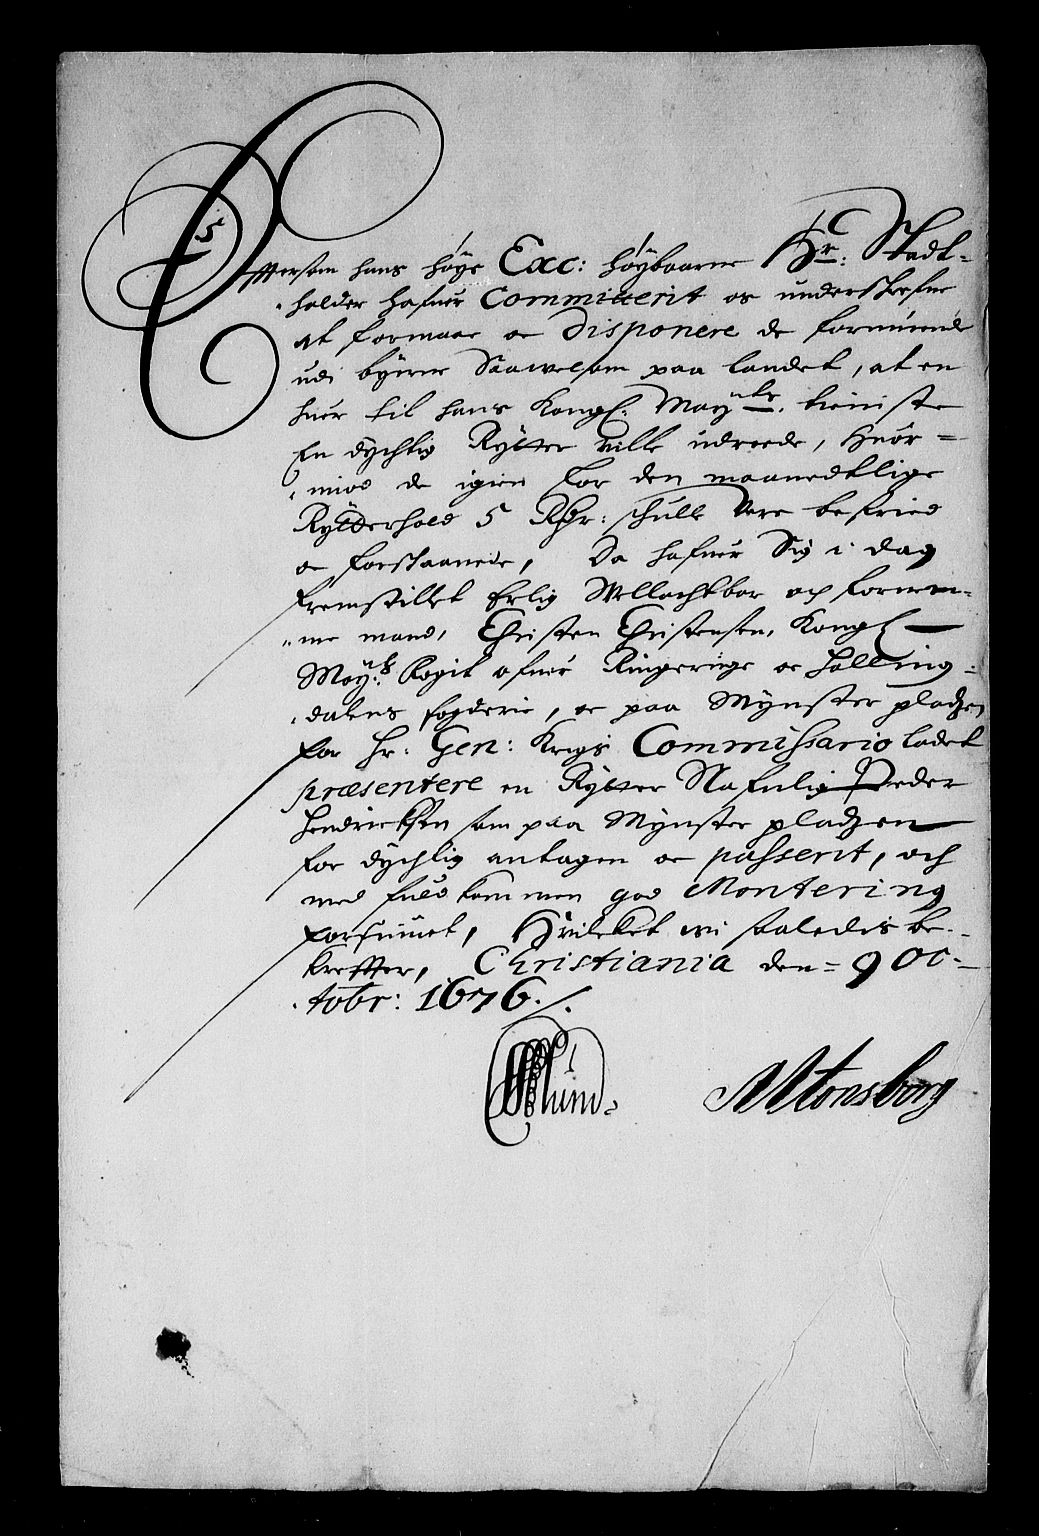 5
Effttersom hans høye Exc: høybaarne Hr: Stadt-
holder hafuer Committerit os underskrefne
at formaae oc disponere de formuende
udi byerne Saawelsom paa landet, at en
huer til hans Kongl. Mayts. tieniste
En dychtig Rytter ville udreede, Huor-
imod de igien for den maanedtlige
Rytterhold 5 Rdr: skulle Vere befried
oc forskaanede, Da hafuer Sig i dag
fremstillet Erlig Wellachtbar och fornem-
me mand, Christen Christensen, Kongl
Mayts fogit ofuer Ringerige oc Halling-
dalens fogderie, oc paa Mynster pladzen
for Hr: Gen: Krigs Commissario ladet
præsentere en Rytter Nafnlig Peder
Hendrichsen som paa Mynster pladzen
for dychtig antagen oc passerit, och
med fuldkommen god Montering
forsiunet, Hvilcket wi saaledis be-
krefter, Christiania den 9 Oc-
tobr: 1676.
Mund
Tonsborg